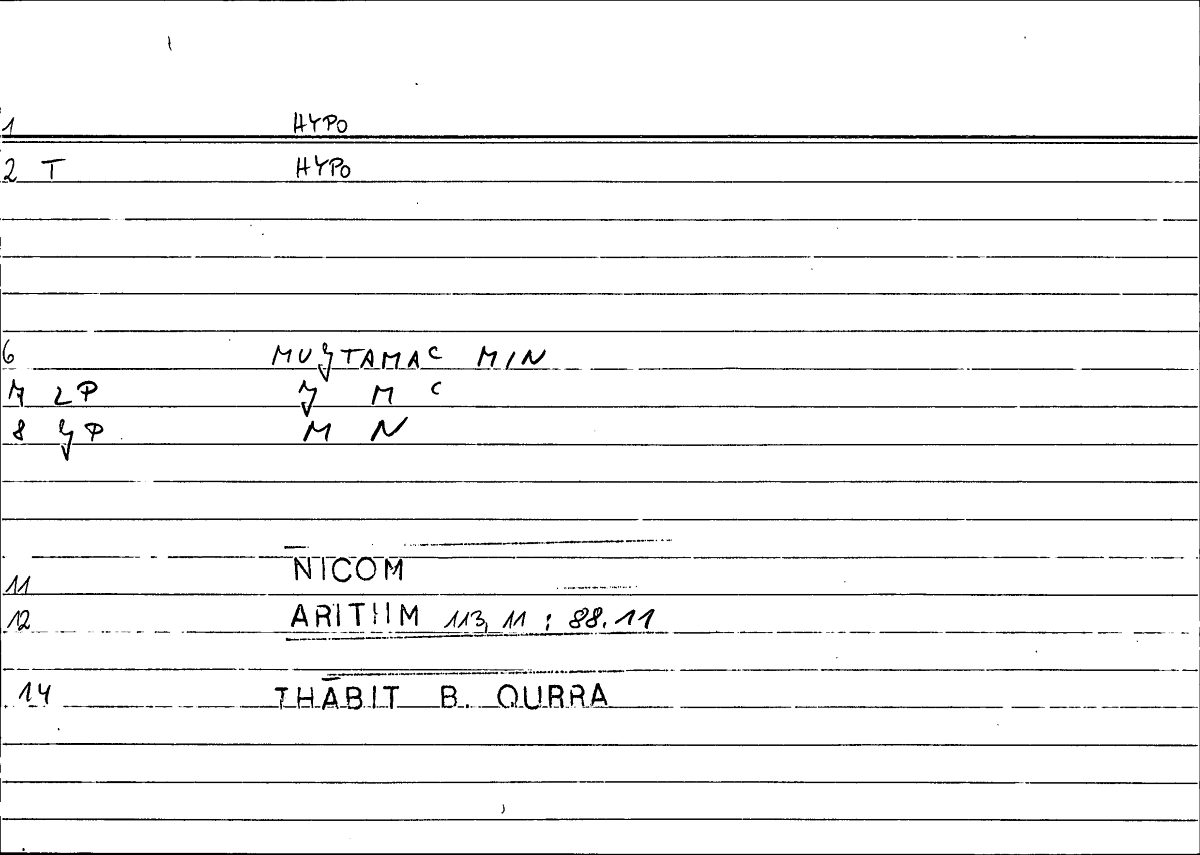 1 HYPO
2 T HYPO
6 MUǦTAMAʿ MIN
7 LP Ǧ M ʿ
8 ǦP M N
11 NICOM
12 ARITHM 113,11 : 88.11
14 THĀBIT B. QURRA